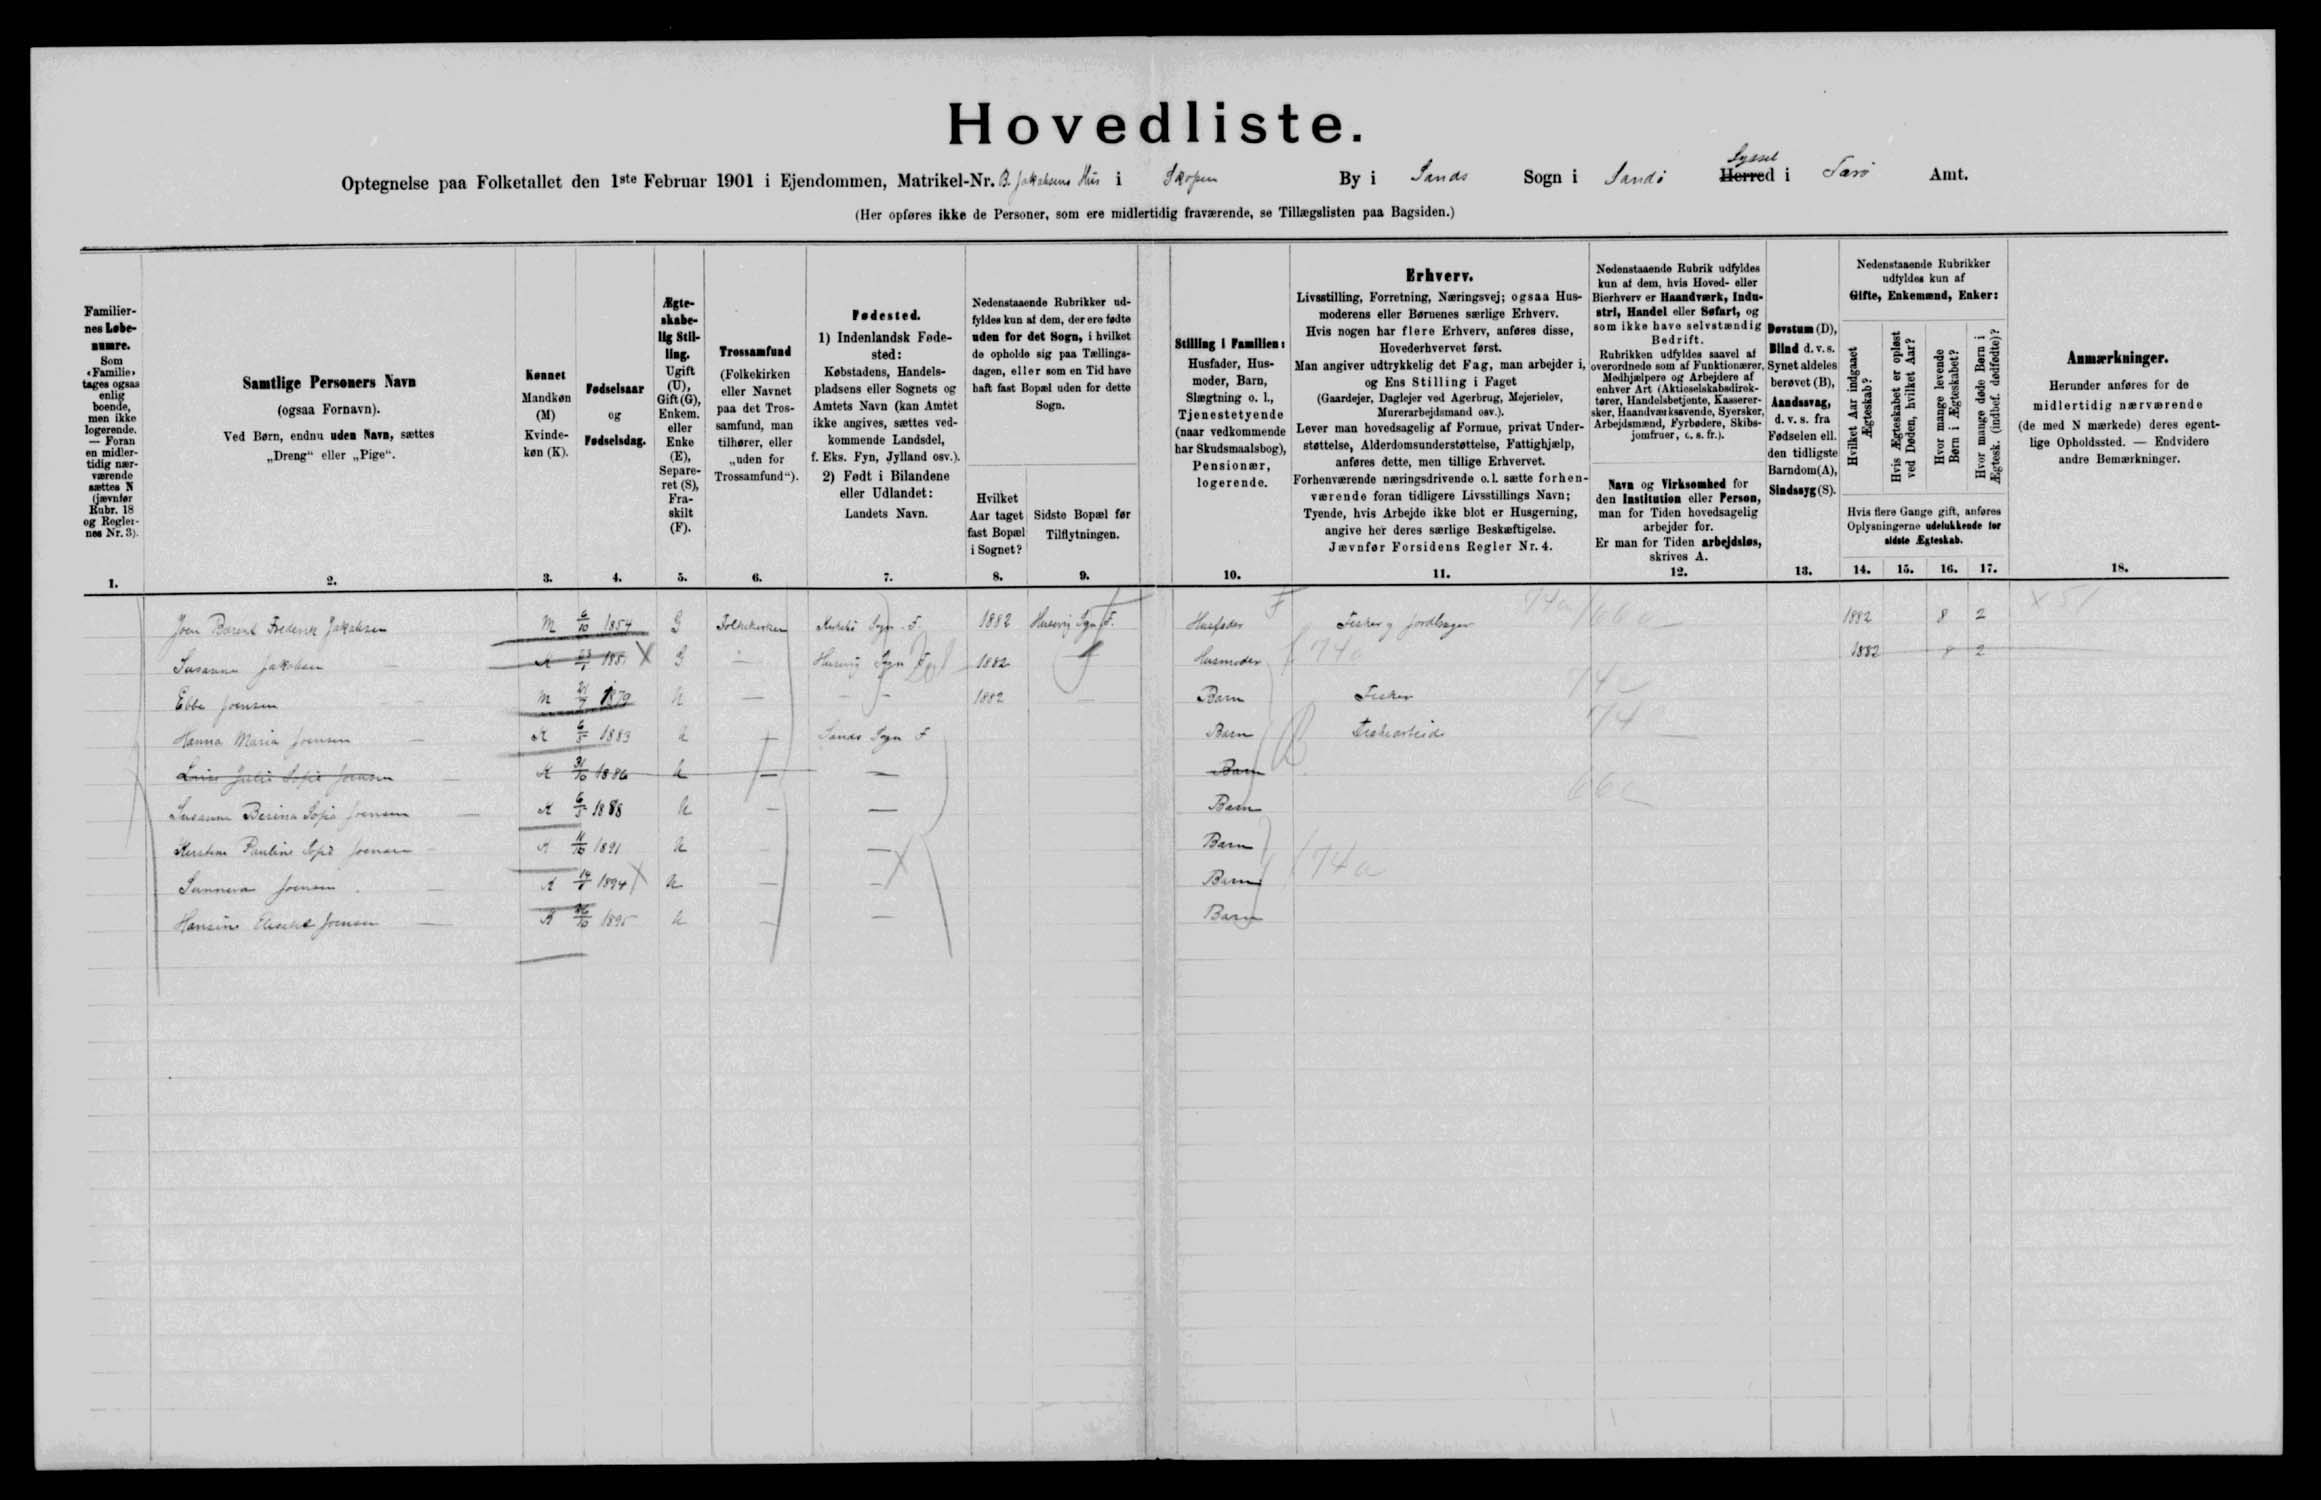 Hovedliste.
Optegnelse paa Folketallet den 1ste Februar 1901 i Ejendommen, Matrikel-Nr. B. Jakobsens Hus i Skopun By i Sands Sogn i Sandø Syssel Herred i Færø Amt.
(Her opføres ikke de Personer, som ere midlertidig fraværende, se Tillægslisten paa Bagsiden.)
Familier-
nes Løbe-
numre.
Som
«Familie»
tages ogsaa
enlig
boende,
men ikke
logerende.
— Foran
en midler-
tidig nær-
værende
sættes N
(jævnfør
Rubr. 18
og Regler-
nes Nr. 3).
1.
Samtlige Personers Navn
(ogsaa Fornavn).
Ved Børn, endnu uden Navn, sættes
„Dreng“ eller „Pige“.
2.
Kønnet
Mandkøn
(M)
Kvinde-
køn (K).
3.
Fødselsaar
og
Fødselsdag.
4.
Ægte-
skabe-
lig Stil-
ling.
Ugift
(U),
Gift (G),
Enkem.
eller
Enke
(E),
Separe-
ret (S),
Fra-
skilt
(F).
5.
Trossamfund
(Folkekirken
eller Navnet
paa det Tros-
samfund, man
tilhører, eller
„uden for
Trossamfund“).
6.
Fødested.
1) Indenlandsk Føde-
sted:
Købstadens, Handels-
pladsens eller Sognets og
Amtets Navn (kan Amtet
ikke angives, sættes ved-
kommende Landsdel,
f. Eks. Fyn, Jylland osv.).
2) Født i Bilandene
eller Udlandet:
Landets Navn.
7.
Nedenstaaende Rubrikker ud-
fyldes kun af dem, der ere fødte
uden for det Sogn, i hvilket
de opholde sig paa Tællings-
dagen, eller som en Tid have
haft fast Bopæl uden for dette
Sogn.
Hvilket
Aar taget
fast Bopæl
i Sognet?
8.
Sidste Bopæl før
Tilflytningen.
9.
Stilling i Familien:
Husfader, Hus-
moder, Barn,
Slægtning o. l.,
Tjenestetyende
(naar vedkommende
har Skudsmaalsbog),
Pensionær,
logerende.
10.
Erhverv.
Livsstilling, Forretning, Næringsvej; ogsaa Hus-
moderens eller Børnenes særlige Erhverv.
Hvis nogen har flere Erhverv, anføres disse,
Hovederhvervet først.
Man angiver udtrykkelig det Fag, man arbejder i,
og Ens Stilling i Faget
(Gaardejer, Daglejer ved Agerbrug, Mejerielev,
Murerarbejdsmand osv.).
Lever man hovedsagelig af Formue, privat Under-
støttelse, Alderdomsunderstøttelse, Fattighjælp,
anføres dette, men tillige Erhvervet.
Forhenværende næringsdrivende o. l. sætte forhen-
værende foran tidligere Livsstillings Navn;
Tyende, hvis Arbejde ikke blot er Husgerning,
angive her deres særlige Beskæftigelse.
Jævnfør Forsidens Regler Nr. 4.
11.
Nedenstaaende Rubrik udfyldes
kun af dem, hvis Hoved- eller
Bierhverv er Haandværk, Indu-
stri, Handel eller Søfart, og
som ikke have selvstændig
Bedrift.
Rubrikken udfyldes saavel af
overordnede som af Funktionærer,
Medhjælpere og Arbejdere af
enhver Art (Aktieselskabsdirek-
tører, Handelsbetjente, Kasserer-
sker, Haandværkssvende, Syersker,
Arbejdsmænd, Fyrbødere, Skibs-
jomfruer, o. s. fr.).
Navn og Virksomhed for
den Institution eller Person,
man for Tiden hovedsagelig
arbejder for.
Er man for Tiden arbejdsløs,
skrives A.
12.
Døvstum (D),
Blind d. v. s.
Synet aldeles
berøvet (B),
Aandssvag,
d. v. s. fra
Fødselen ell.
den tidligste
Barndom (A),
Sindssyg (S).
13.
Nedenstaaende Rubrikker
udfyldes kun af
Gifte, Enkemænd, Enker:
Hvilket Aar indgaaet
Ægteskab?
Hvis Ægteskabet er opløst
ved Døden, hvilket Aar?
Hvor mange levende
Børn i Ægteskabet?
Hvor mange døde Børn i
Ægtesk. (indbef. dødfødte)?
Hvis flere Gange gift, anføres
Oplysningerne udelukkende for
sidste Ægteskab.
14. 15. 16. 17.
Anmærkninger.
Herunder anføres for de
midlertidig nærværende
(de med N mærkede) deres egent-
lige Opholdssted. — Endvidere
andre Bemærkninger.
18.
Joen Barent Frederik Jakobsen M 6/10 1854 G Folkekirken Sogn F. 1882 Husevig Sgn F. Husfader Fisker og Jordbruger 1882 8 2
Susanne Jakobsen — K 23/1 G — Husevig Sogn F 1882 Husmoder 74a 1882 8 2
Ebbe Joensen — M 1879 U — — 1882 — Barn Fisker
Hanna Maria Joensen — K 6/5 1883 U — Sands Sogn F Barn
Sofie Joensen — K 31/10 1886 U — — Barn
Susanne Berina Sofia Joensen — K 6/5 1888 U — — Barn
Pauline Joensen — K 11/10 1891 U — Barn 74a
Sunneva Joensen — K 14/8 1894 U — — Barn
Hansine Joensen — K 26/10 1895 U — — Barn